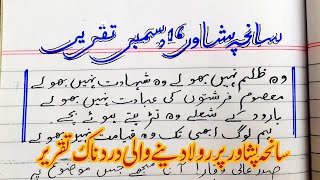 سانحہ پشاور 16 دسمبر تقریر
وہ ظلم نہیں بھولے وہ شہادت نہیں بھولے
معصوم فرشتوں کی عبادت نہیں بھولے
بارود کے شعلے وہ تڑپتے ہوئے بچے
ہم لوگ ابھی تک وہ قیامت نہیں بھولے
سانحہ پشاور پر رولا دینے والی دردناک تقریر
صدر عالی وقار! آج مجھے جس موضوع پر